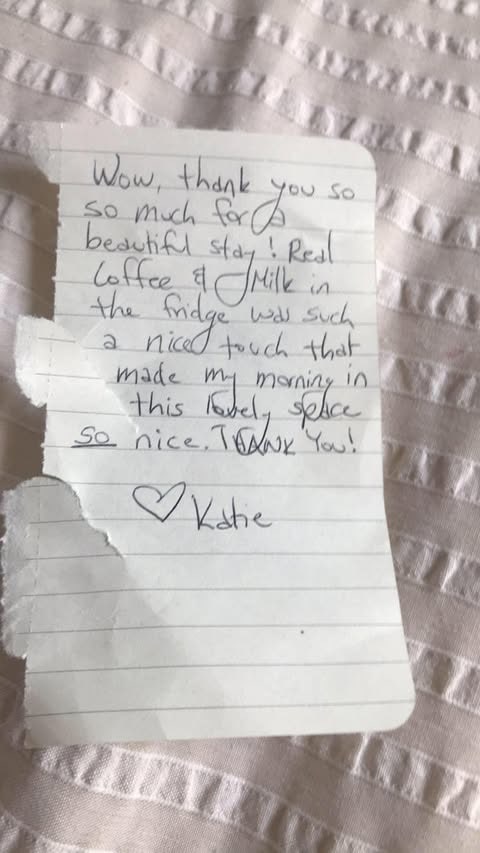 Wow, thank you so
so much for a
beautiful stay! Real
Coffee & Milk in
the fridge was such
a nice touch that
made my morning in
this lovely space
so nice. THANK YOU!
♡ Katie